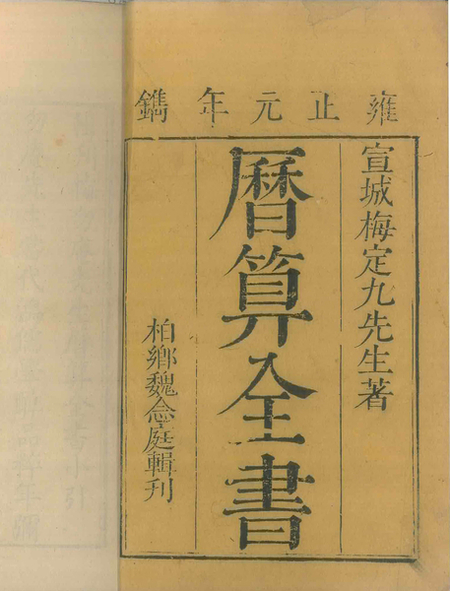 雍止元年鐫
宣城梅定九先生著
曆算全書
柏鄉魏念庭輯刊